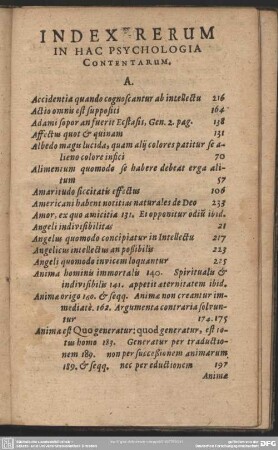 INDEX RERUM
IN HAC PSYCHOLOGIA
CONTENTARUM.
A.
Accidentia quando cognoscantur ab intellectu 216
Actio omnis est suppositi 164
Adami sopor an fuerit Ecstasis, Gen. 2. pag. 138
Affectus quot & quinam 131
Albedo magis lucida, quam alij colores patitur se a-
lieno colore infici 70
Alimentum quomodo se habere debeat erga ali-
tum 57
Amaritudo siccitatis effectus 106
Americani habent notitias naturales de Deo 233
Amor, ex quo amicitia 131. Ei opponitur odiũ ibid.
Angeli indivisibilitas 21
Angelus quomodo concipiatur in Intellectu 217
Angelicus intellectus an possibilis 223
Angeli quomodo invicem loquantur 225
Anima hominis immortalis 140. Spiritualis &
indivisibilis 141. appetit aternitatem ibid.
Anima origo 160. & seqq. Anima non creantur im-
mediatè. 162. Argumenta contraria solvun-
tur 174. 175
Anima est Quo generatur: quod generatur, est to-
tus homo 183. Generatur per traductio-
nem 189. non per successionem animarum
189. & seqq. nec per eductionem 197
Anima